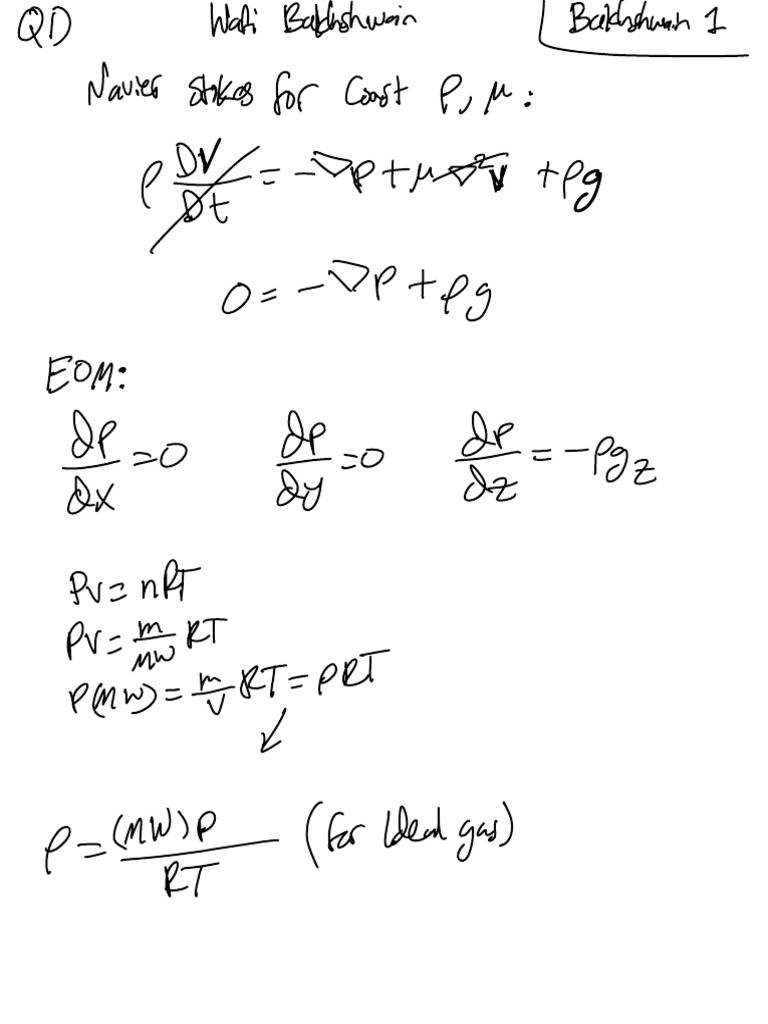 QD Wafi Bakhshwain Bakhshwain 1
Navier stokes for Const ρ, μ:
ρ DV/Dt = -∇p + μ∇²V + ρg
0 = -∇p + ρg
EOM:
∂p/∂x = 0 ∂p/∂y = 0 ∂p/∂z = -ρg_z
PV = nRT
PV = m/MW RT
P(MW) = m/V RT = ρRT
↙
ρ = (MW)P/RT (for Ideal gas)